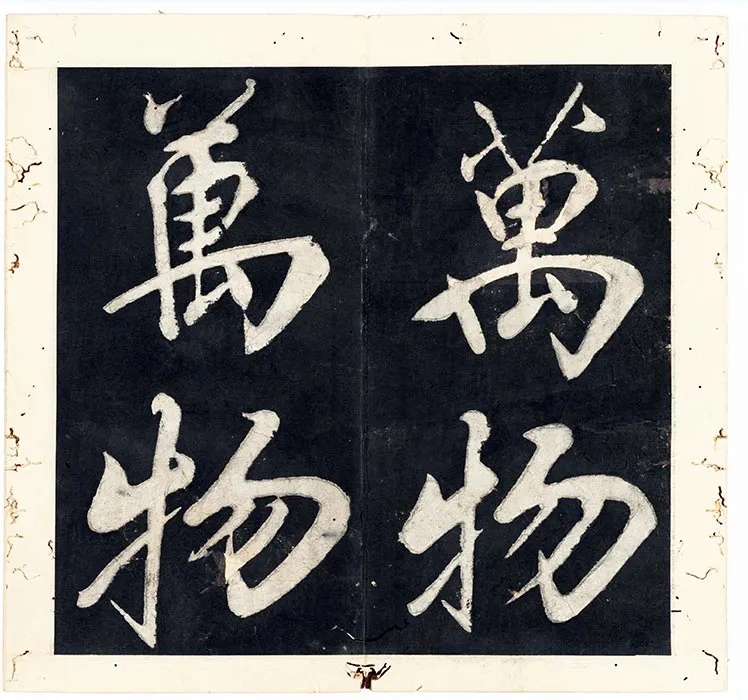 萬物
萬物